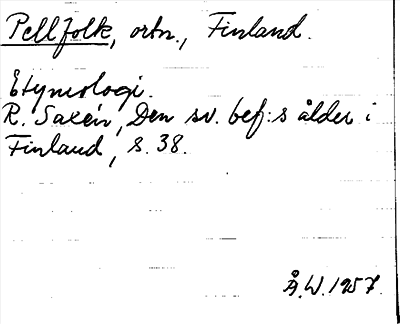 Pellfolk, ortn., Finland.
Etymologi.
R. Saxén, Den sv. bef:s ålder i
Finland, s. 38.
Å.W. 1957.